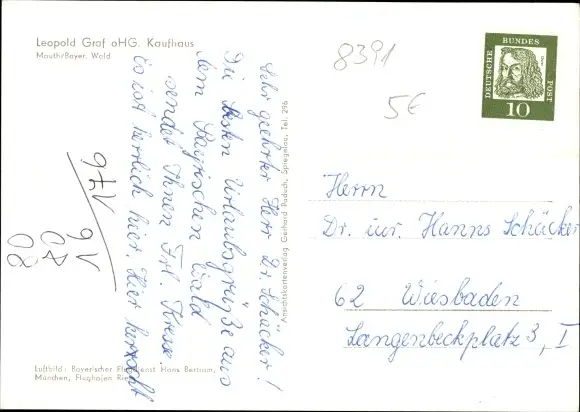 Leopold Graf oHG. Kaufhaus
Mauth/Bayer. Wald
8391
5€
DEUTSCHE
BUNDES
POST
10
Sehr geehrter Herr Dr. Schäcker!
Die besten Urlaubsgrüße aus
dem Bayrischen Wald
sendet Ihnen Frl. Kresse.
Es ist herrlich hier. Hier herrscht
Ansichtskartenverlag Gerhard Padoch, Spiegelau, Tel. 296
Herrn
Dr. iur. Hanns Schäcker
62 Wiesbaden
Langenbeckplatz 3, I
Luftbild: Bayerischer Flugdienst Hans Bertram,
München, Flughafen